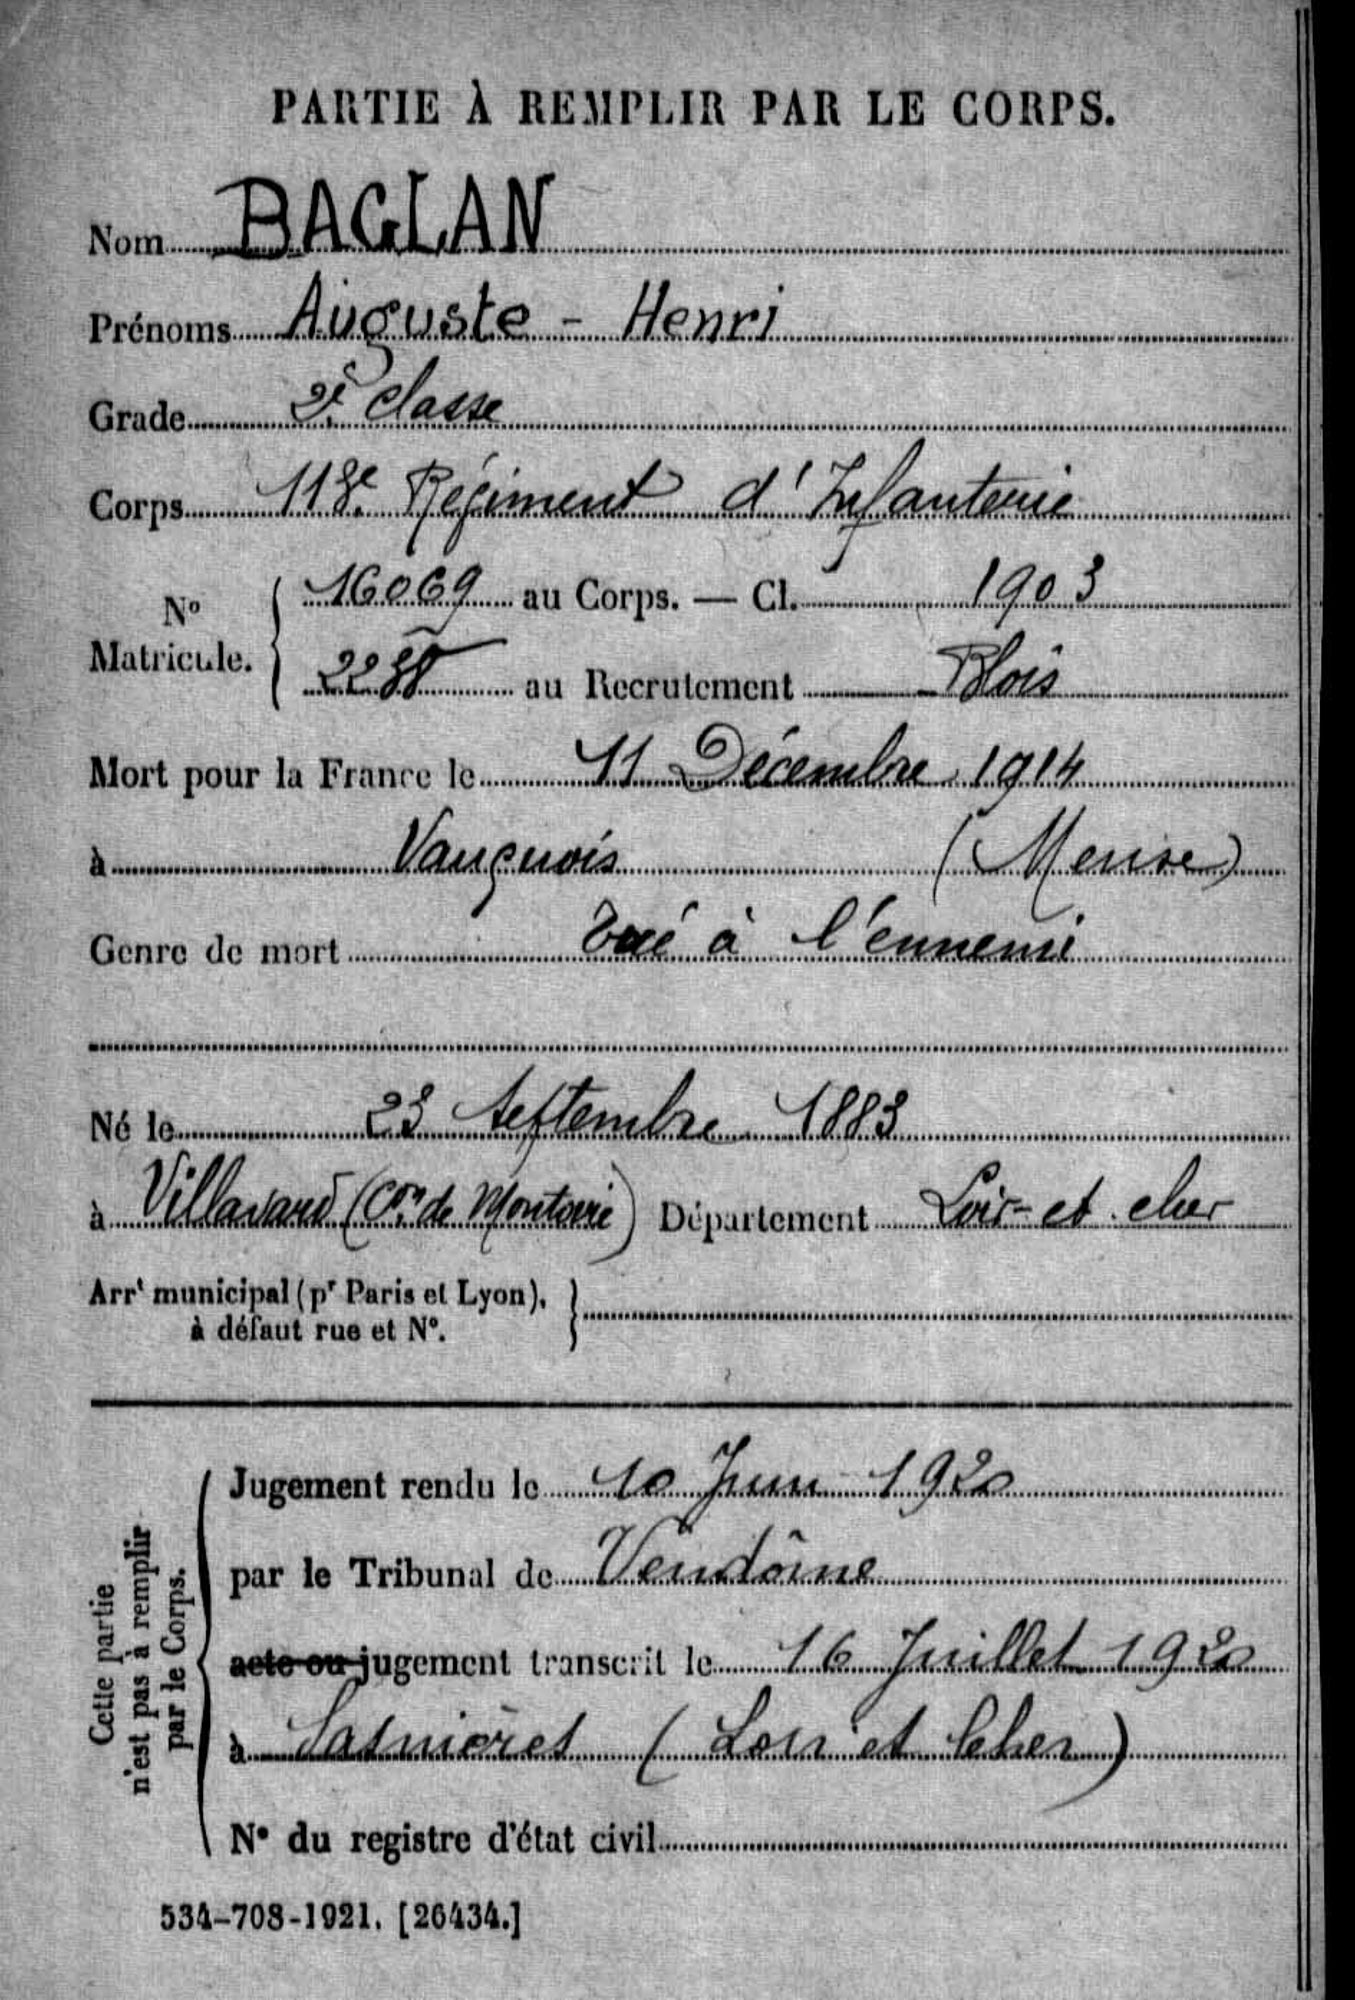 PARTIE À REMPLIR PAR LE CORPS.
Nom BAGLAN
Prénoms Auguste - Henri
Grade 2e classe
Corps 113e Régiment d'Infanterie
No Matricule. { 16069 au Corps. — Cl. 1903
au Recrutement Blois
Mort pour la France le 11 Décembre 1914
à Vauquois (Meuse)
Genre de mort tué à l'ennemi
Né le 23 Septembre 1883
à Villavard (Con de Montoire) Département Loir-et-cher
Arrt municipal (pr Paris et Lyon), }
à défaut rue et No.
Cette partie
n'est pas à remplir
par le Corps.
Jugement rendu le 10 Juin 1920
par le Tribunal de Vendôme
acte ou jugement transcrit le 16 Juillet 1920
à Sasnières (Loir et Cher)
No du registre d'état civil
534-708-1921. [26434.]